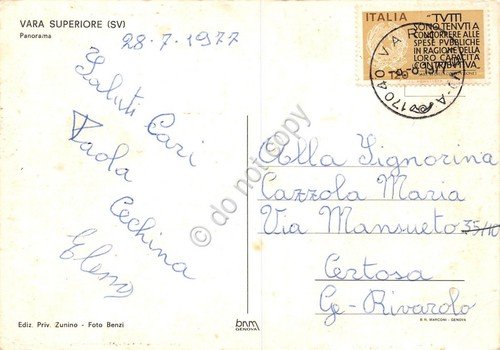 VARA SUPERIORE (SV)
Panorama
28-7-1977
Saluti Cari
Paola
Cechina
Elena
ITALIA
"TUTTI
SONO TENUTI A
CONCORRERE ALLE
SPESE PUBBLICHE
IN RAGIONE DELLA
LORO CAPACITÀ
CONTRIBUTIVA"
17040 VARA
Alla Signorina
Cazzola Maria
Via Mansueto 35/10
Certosa
Ge-Rivarolo
do not copy
Ediz. Priv. Zunino - Foto Benzi
bnm
GENOVA
B.N. MARCONI - GENOVA